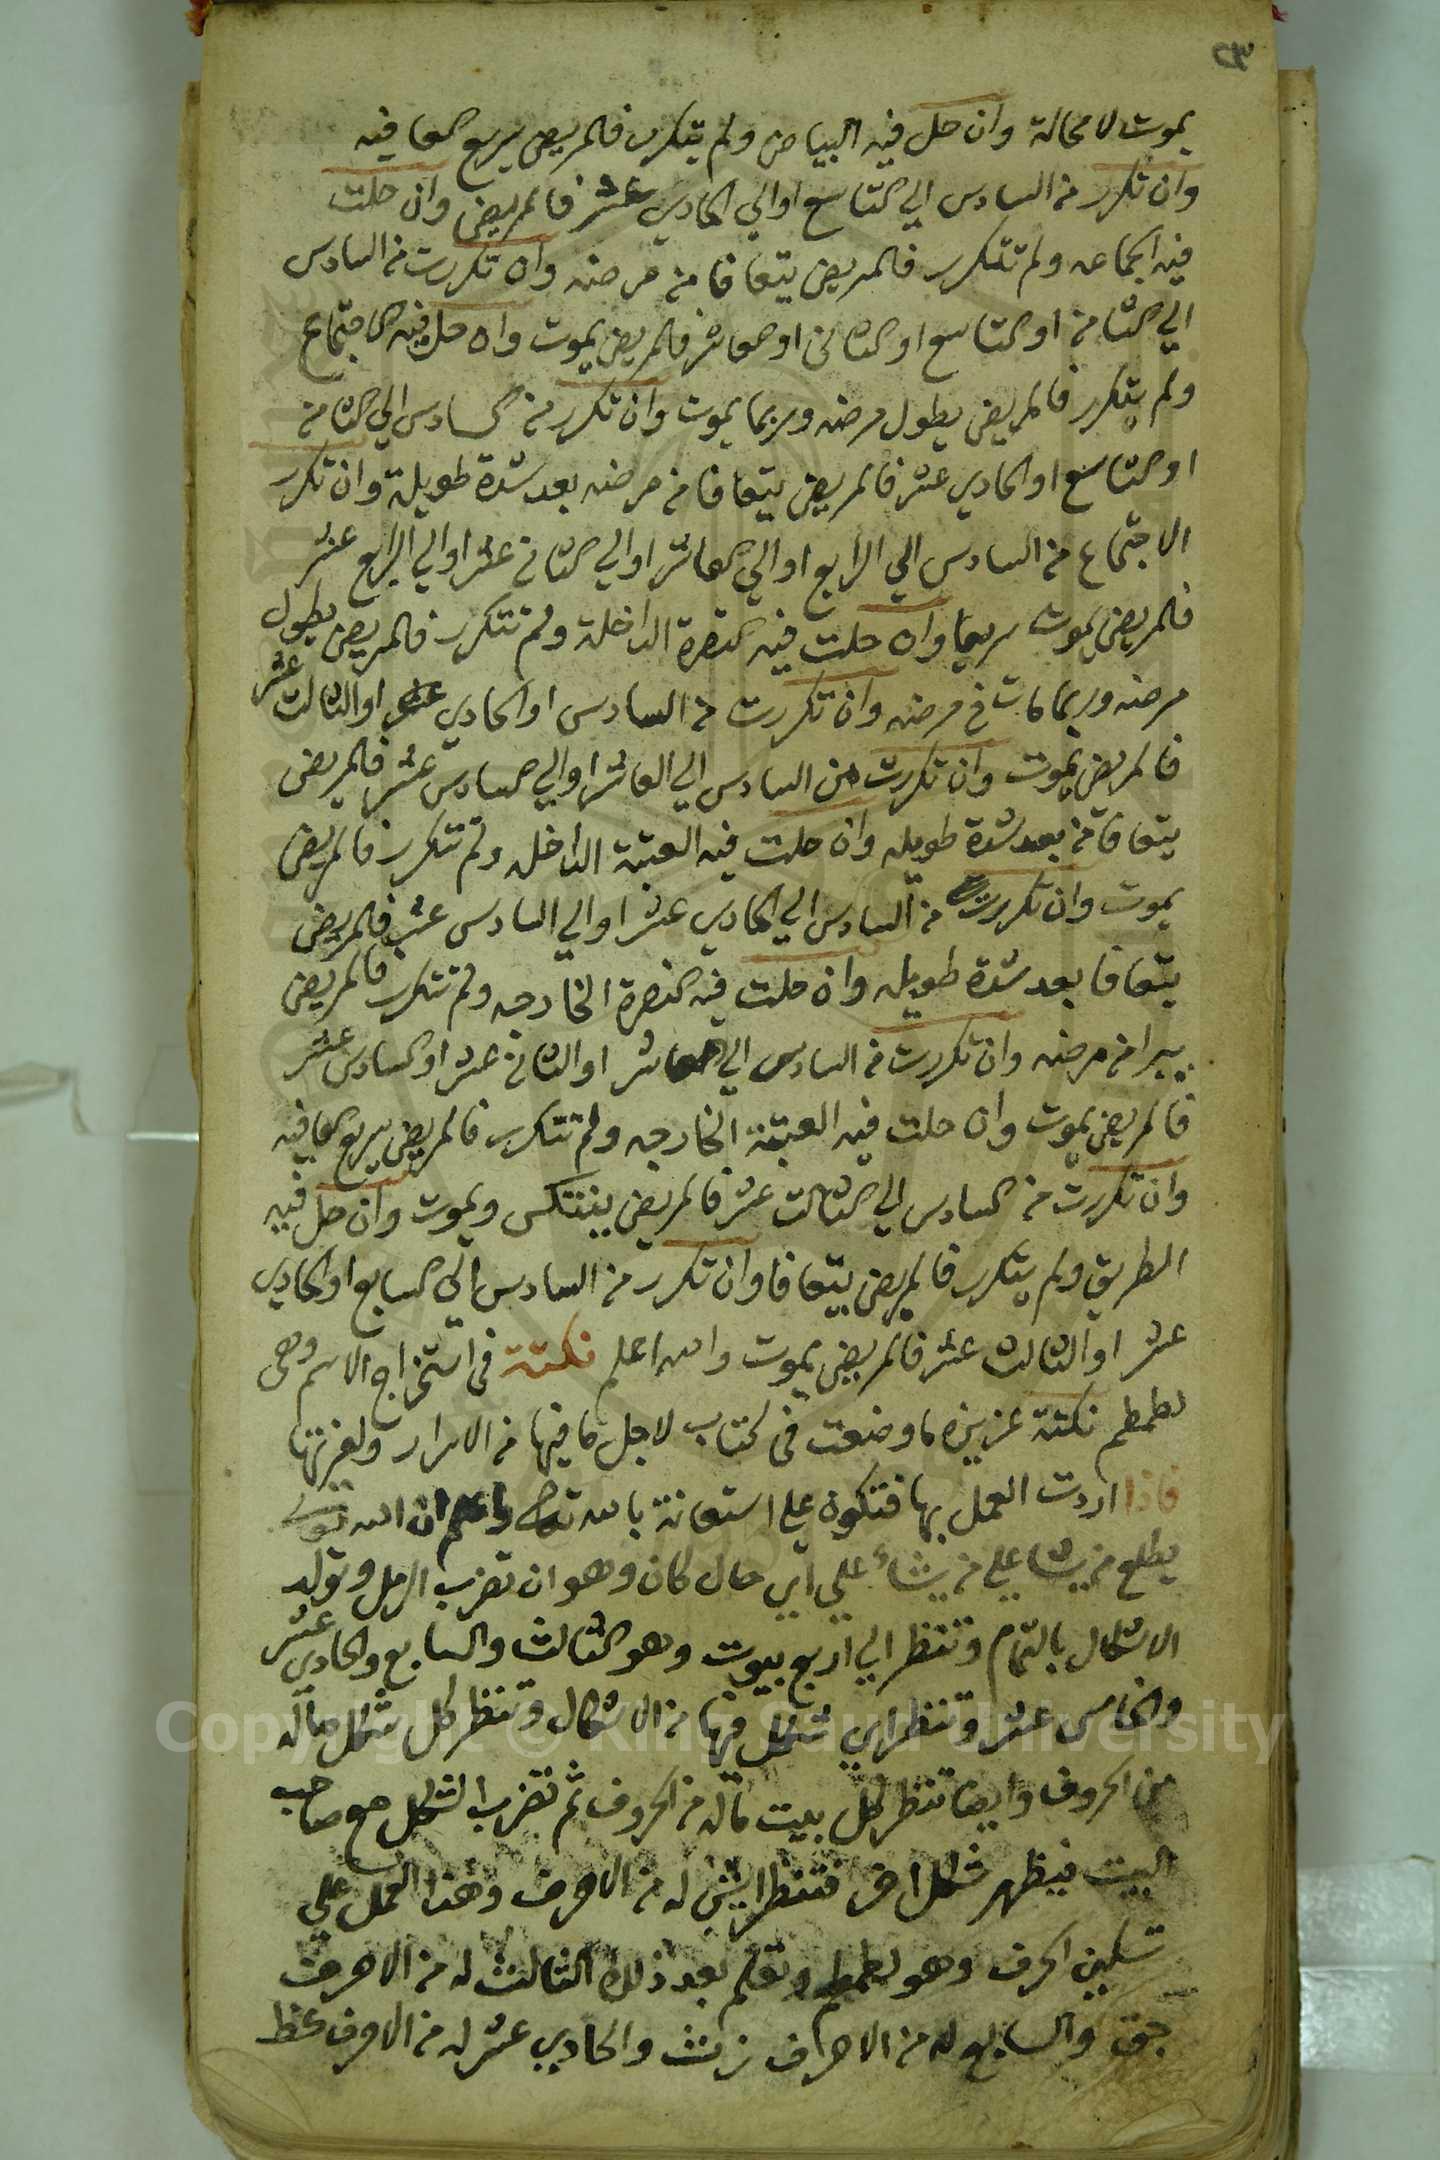 ٢٣
يموت لا محالة وان حل فيه البياض ولم يتكرر فالمريض سريع العافيه
وان تكرر من السادس الي التاسع او الي الحادي عشر فالمريض وان حلت
فيه الجماعه ولم تتكرر فالمريض يتعافا من مرضه وان تكررت من السادس
الي الثامن او التاسع او الثاني او العاشر فالمريض يموت وان حل فيه الاجتماع
ولم يتكرر فالمريض يطول مرضه وربما يموت وان تكرر من السادس الي الثامن
او التاسع او الحادي عشر فالمريض يتعافا من مرضه بعد شدة طويلة وان تكرر
الاجتماع من السادس الي الرابع او الي العاشر او الي الثاني عشر او الي الرابع عشر
فالمريض يموت سريعا وان حلت فيه النصرة الداخلة ولم تتكرر فالمريض يطول
مرضه وربما مات في مرضه وان تكررت من السادس او الحادي عشر او الثالث عشر
فالمريض يموت وان تكررت من السادس الي العاشر او الي السادس عشر فالمريض
يتعافا من بعد شدة طويله وان حلت فيه العتبة الداخله ولم تتكرر فالمريض
يموت وان تكررت من السادس الي الحادي عشر او الي السادس عشر فالمريض
يتعافا بعد شدة طويله وان حلت فيه النصرة الخارجه ولم تتكرر فالمريض
يبرا من مرضه وان تكررت من السادس الي العاشر او الثاني عشر او السادس عشر
فالمريض يموت وان حلت فيه العتبة الخارجه ولم تتكرر فالمريض سريع العافيه
وان تكررت من السادس الي الثالث عشر فالمريض ينتكس ويموت وان حل فيه
الطريق ولم يتكرر فالمريض يتعافا وان تكرر من السادس الي السابع او الحادي
عشر او الثالث عشر فالمريض يموت والله اعلم نكتة في استخراج الاسم وهي
لطمطم نكتة عزيزه ما وضعت في كتاب لاجل ما فيها من الاسرار ولعزتها
فاذا اردت العمل بها فتكون علي استعانة بالله تعالى واعلم ان الله تعالى
يطلع من يشا علي من يشاء علي اي حال كان وهو ان تضرب الرمل وتولد
الاشكال بالتمام وتنظر الي اربع بيوت وهو الثالث والسابع والحادي عشر
والخامس عشر وتنظر اي شكل فيها من الاشكال وتنظر كل شكل ماله
من الحروف وايضا تنظر لكل بيت ماله من الحروف ثم تضرب الشكل مع صاحب
البيت فيظهر شكل اخر فتنظر ايش له من الاحرف وهذا العمل علي
تسكين الحرف وهو لطمطم وتعلم بعد ذلك الثالث له من الاحرف
جق والسابع له من الاحرف زث والحادي عشر له من الاحرف كظ
Copyright © King Saud University